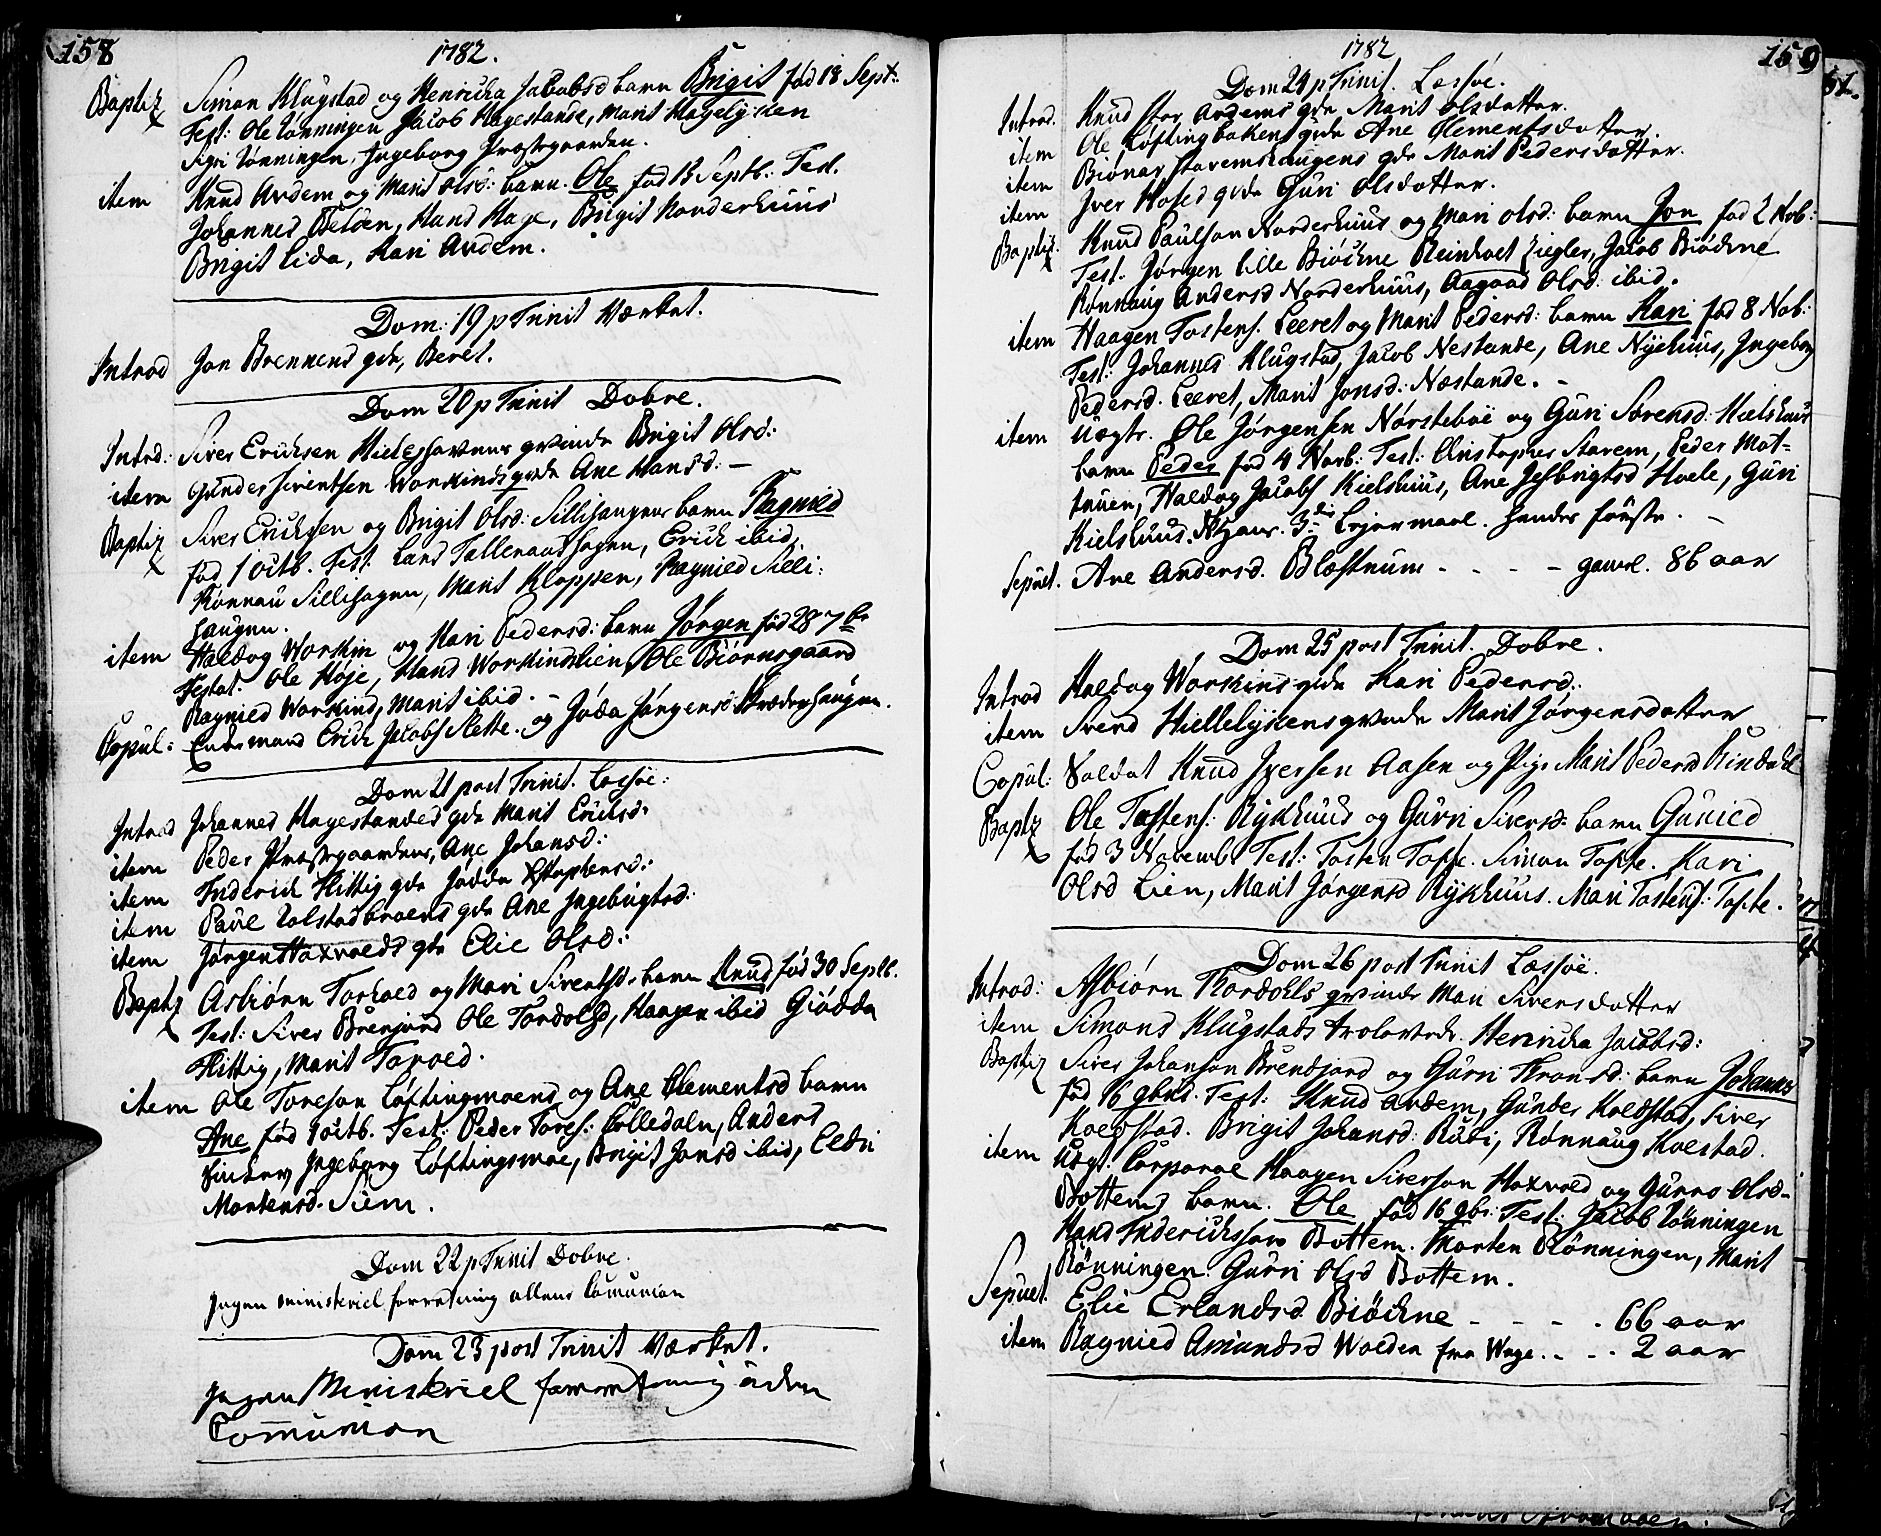 158
1782.
Baptiz Simon Klugstad og Henricka Jacobsd barn Brigit fød 18 Sept:
Test: Ole Rønningen Jacob Hagestande, Marit Hagelykken
Sigri Rønningen, Ingeborg Præstgaarden.
item Knud Ardem og Marit Olsd: barn. Ole fød 13 Septb: Test.
Johannes Hand Hage, Brigit Norderhuus
Brigit Lida, Kari Ardem.
Dom: 19 p Trinit Værket.
Introd Jon Brennens qde, Beret.
Dom 20 p Trinit Dobre.
Introd: Siver Erichsen qvinde Brigit Olsd:
item Gunder Sivertsen Worskinds qvde Ane Hansd: –
Baptiz Siver Erichsen og Brigit Olsd: Sillihaugens barn Ragnild
fød 1 octb. Test. Lars Talleraas hagen, Erich ibid,
Rønnau Sillihagen, Marit Kloppen, Ragnild Silli:
haugen.
item Haldog Worskin og Kari Pedersd: barn Jørgen fød 28 7br
Testat: Ole Høje, Hans Worskindslien, Ole Biørnsgaard
Ragnild Worskind, Marit ibid. –
Copul: Enkemand Erich Jacobs Slette. og Joda Jørgensd haugen.
Dom 21 post Trinit. Lessøe:
Introd Johannes Hagestandes qde Marit Erichsd:
item Peder Præstgaardens, Ane Johansd:
item Friderich Flittig qde Jødda Stephensd:
item Paul Kolstadbroens qde Ane Ingebrigtsd:
item Jørgen Haxvolds qde Elie Olsd:
Baptz Asbiørn Torvold og Mari Sivertsd: barn Knud fød 30 Septb.
Test: Siver Brenjord Ole Tordols, Haagen ibid Giødda
Flittig, Marit
item Ole Toresøn Løftingmoens og Ane Clementsd barn
Ane fød 1 octb. Test: Peder Tores: Lilledalen, Anders
Ingeborg Løftingsmoe, Brigit Jonsd ibid, Eldri
Mortensd. Siem.
Dom 22 p Trinit Dobre.
Ingen ministeriel forretning allene Comunion
Dom 23 post Trinit Værket.
Ingen Ministeriel forretning uden
Comunion
1782
159
Dom 24 p Trinit. Lessøe.
Introd. Knud Stor Ardems qde Marit Olsdatter.
item Ole Løftingbakens qde Ane Clementsdatter.
item Biønar Staremshaugens qde Marit Pedersdatter.
item Iver Hosed qvde Guri Olsdatter.
Baptz: Knud Paulsøn Norderhuus og Mari Olsd: barn Jon fød 2 Nob:
Test: Jørgen Lille Biøckne Reinholt Ziegler, Jacob Biøckne
Rønnaug Andersd Norderhuus, Aagaad Olsd: ibid.
item Haagen Tostens: Leeret og Marit Pedersd: barn Kari fød 8 Nob:
Test: Johannes Klugstad, Jacob Nestande, Ane Nyehuus, Ingeborg
Pedersd. Leeret, Marit Jonsd: Næstande. –
item Uægte. Ole Jørgensen Nørsteboe og Guri Sørensd: Kielshuus
barn Peder fød 4 Novb: Test: Christopher Starem, Peder Mat-
truen, Haldog Jacobs Kielshuus, Ane Jesbrigtsd Hvole, Guri
Kielshuus. NB hans 3die leyermaal. hendes første. –
Sepult. Ane Andersd. Blæstrum - - - - gamel. 86 aar
Dom 25 post Trinit. Dobre.
Introd Haldog Worskins qde Kari Pedersd:
item Svend Hiellelykens qvinde Marit Jørgensdatter
Copul: Soldat Knud Iversen Aasen og Pige Marit Pedersd Rindahl
Baptz Ole Tostens: Rykhuus og Guri Siversd: barn Guriled
fød 3 Novemb. Test: Tosten Tofte. Simon Tofte. Kari
Olsd Lien, Marit Jørgensd Rykhuus. Mari Tostens: Tofte.
Dom 26 post Trinit Lessøe.
Introd: Asbiørn Thordohls qvinde Mari Siversdatter
item Simons Klugstads trolovede. Henricka Jacobsd:
Baptiz Siver Johansøn Brendjord og Guri Thronsd: barn Johannes
fød 16 9bris. Test: Knud Ardem, Gunder Koldstad, Siver
Kolstad. Brigit Johansd: Rusti, Rønnaug Kolstad.
item Uægt. Corporal Haagen Siversøn Haxvold og Guro Olsd-
Bottems barn. Ole fød 16 9br: Test: Jacob Rønningen
Hans Friderichssøn Bottem. Morten Rønningen, Marit
Rønningen. Guri Olsd Bottem.
Sepult. Elie Erlandsd. Biøckne - - - - . 66 aar
item Ragnild Amundsd Wolden fra Wage. . - - . 2 aar